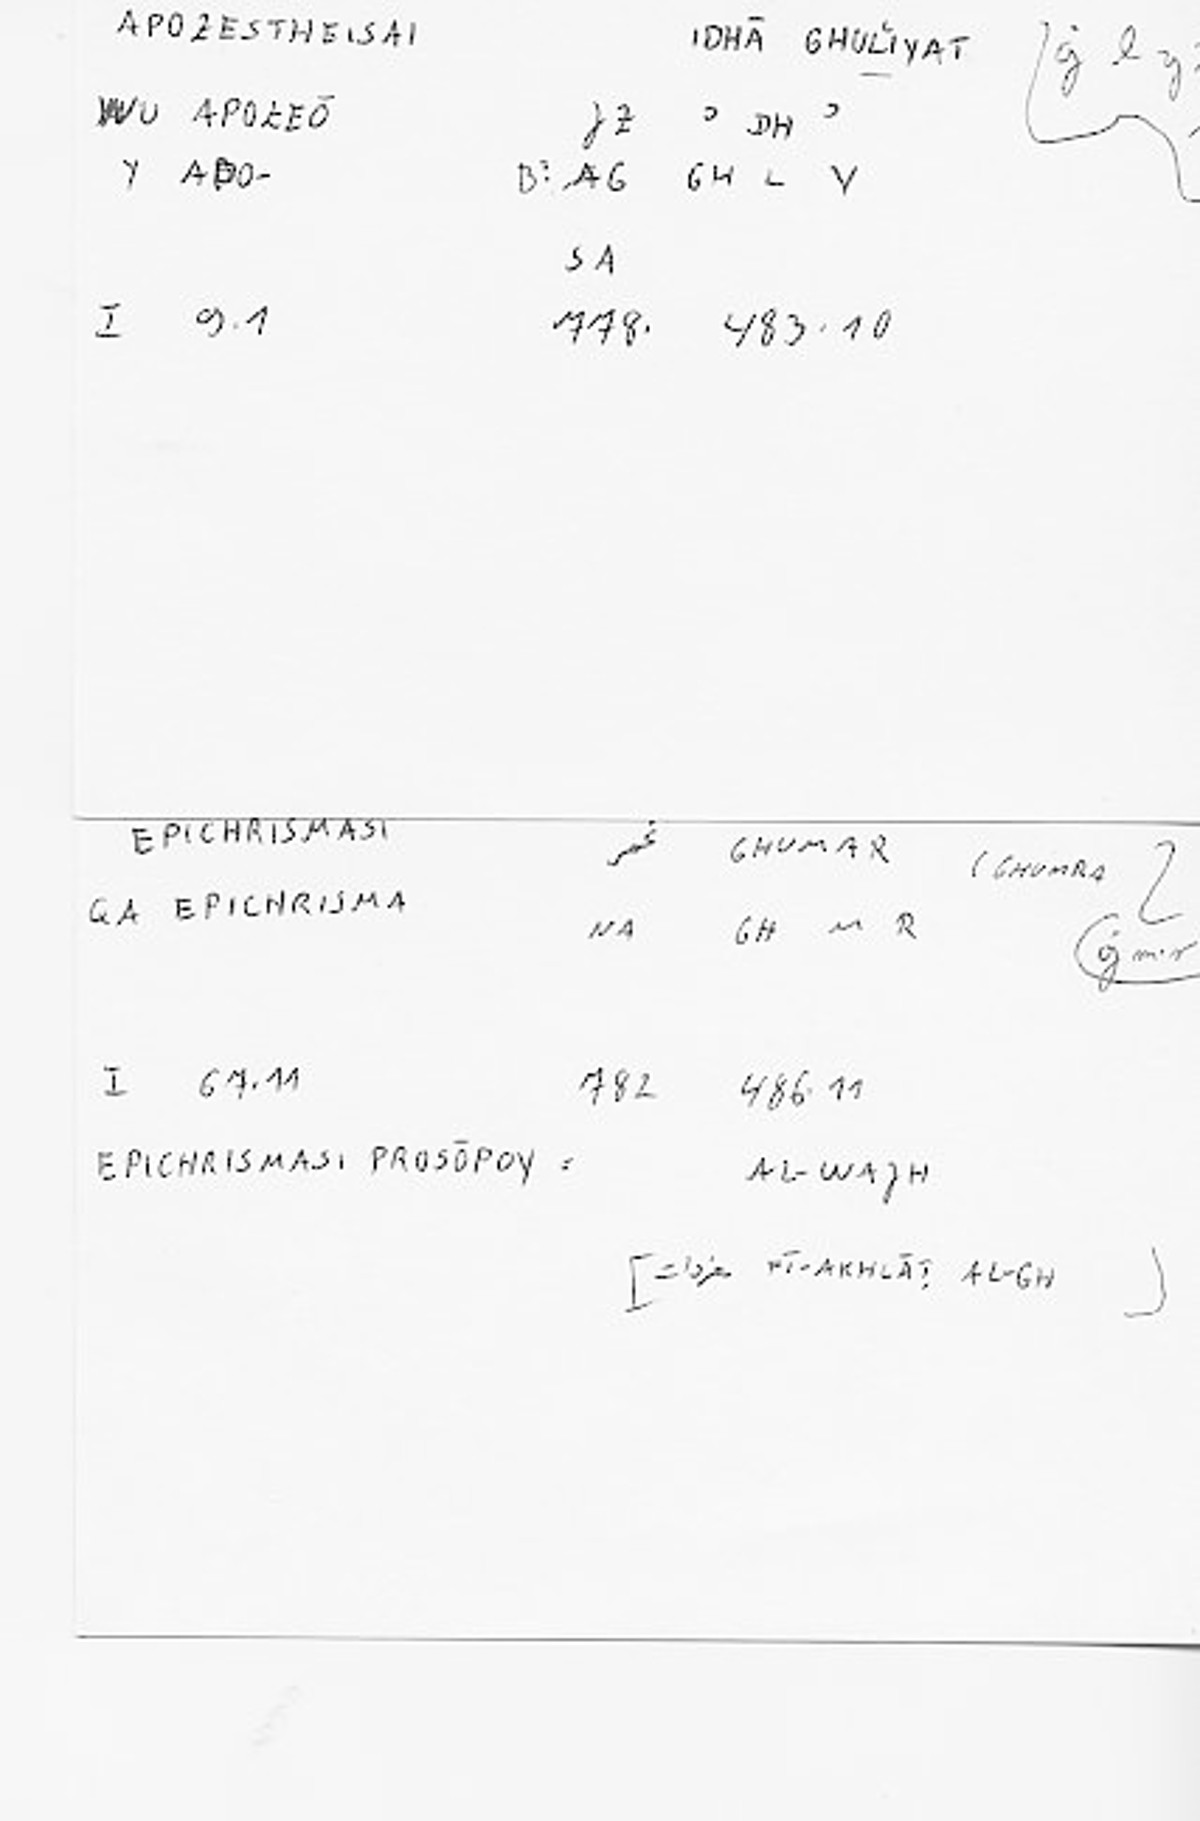 APOZESTHEISAI IDHĀ GHULIYAT [ġ l y
WU APOZEŌ JZ ʾ DH ʾ
Y APO- B: AG GH L Y
SA
I 9.1 778. 483.10
EPICHRISMASI غمر GHUMAR (GHUMRA
QA EPICHRISMA NA GH M R ġ m r
I 67.11 782 486.11
EPICHRISMASI PROSŌPOY = AL-WAJH
[= FĪ-AKHLĀṬ AL-GH ]